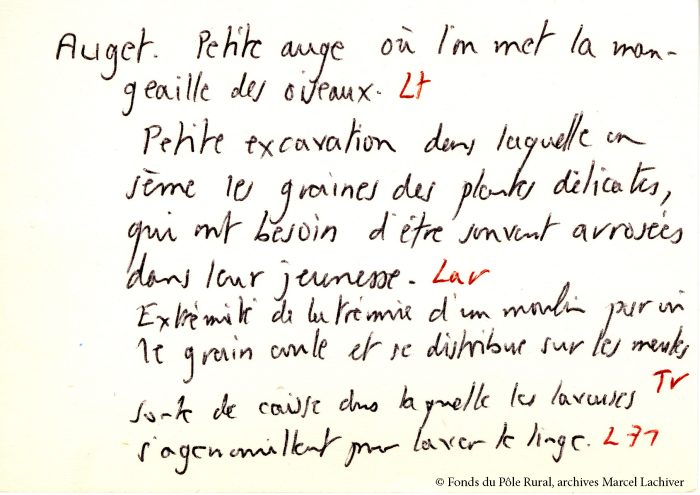 Auget. Petite auge où l'on met la man-
geaille des oiseaux. Lt
Petite excavation dans laquelle on
sème les graines des plantes délicates,
qui ont besoin d'être souvent arrosées
dans leur jeunesse. Lar
Extrémité de la trémie d'un moulin par où
le grain coule et se distribue sur les meules
Tr
sorte de caisse dans laquelle les laveuses
s'agenouillent pour laver le linge. L71
© Fonds du Pôle Rural, archives Marcel Lachiver